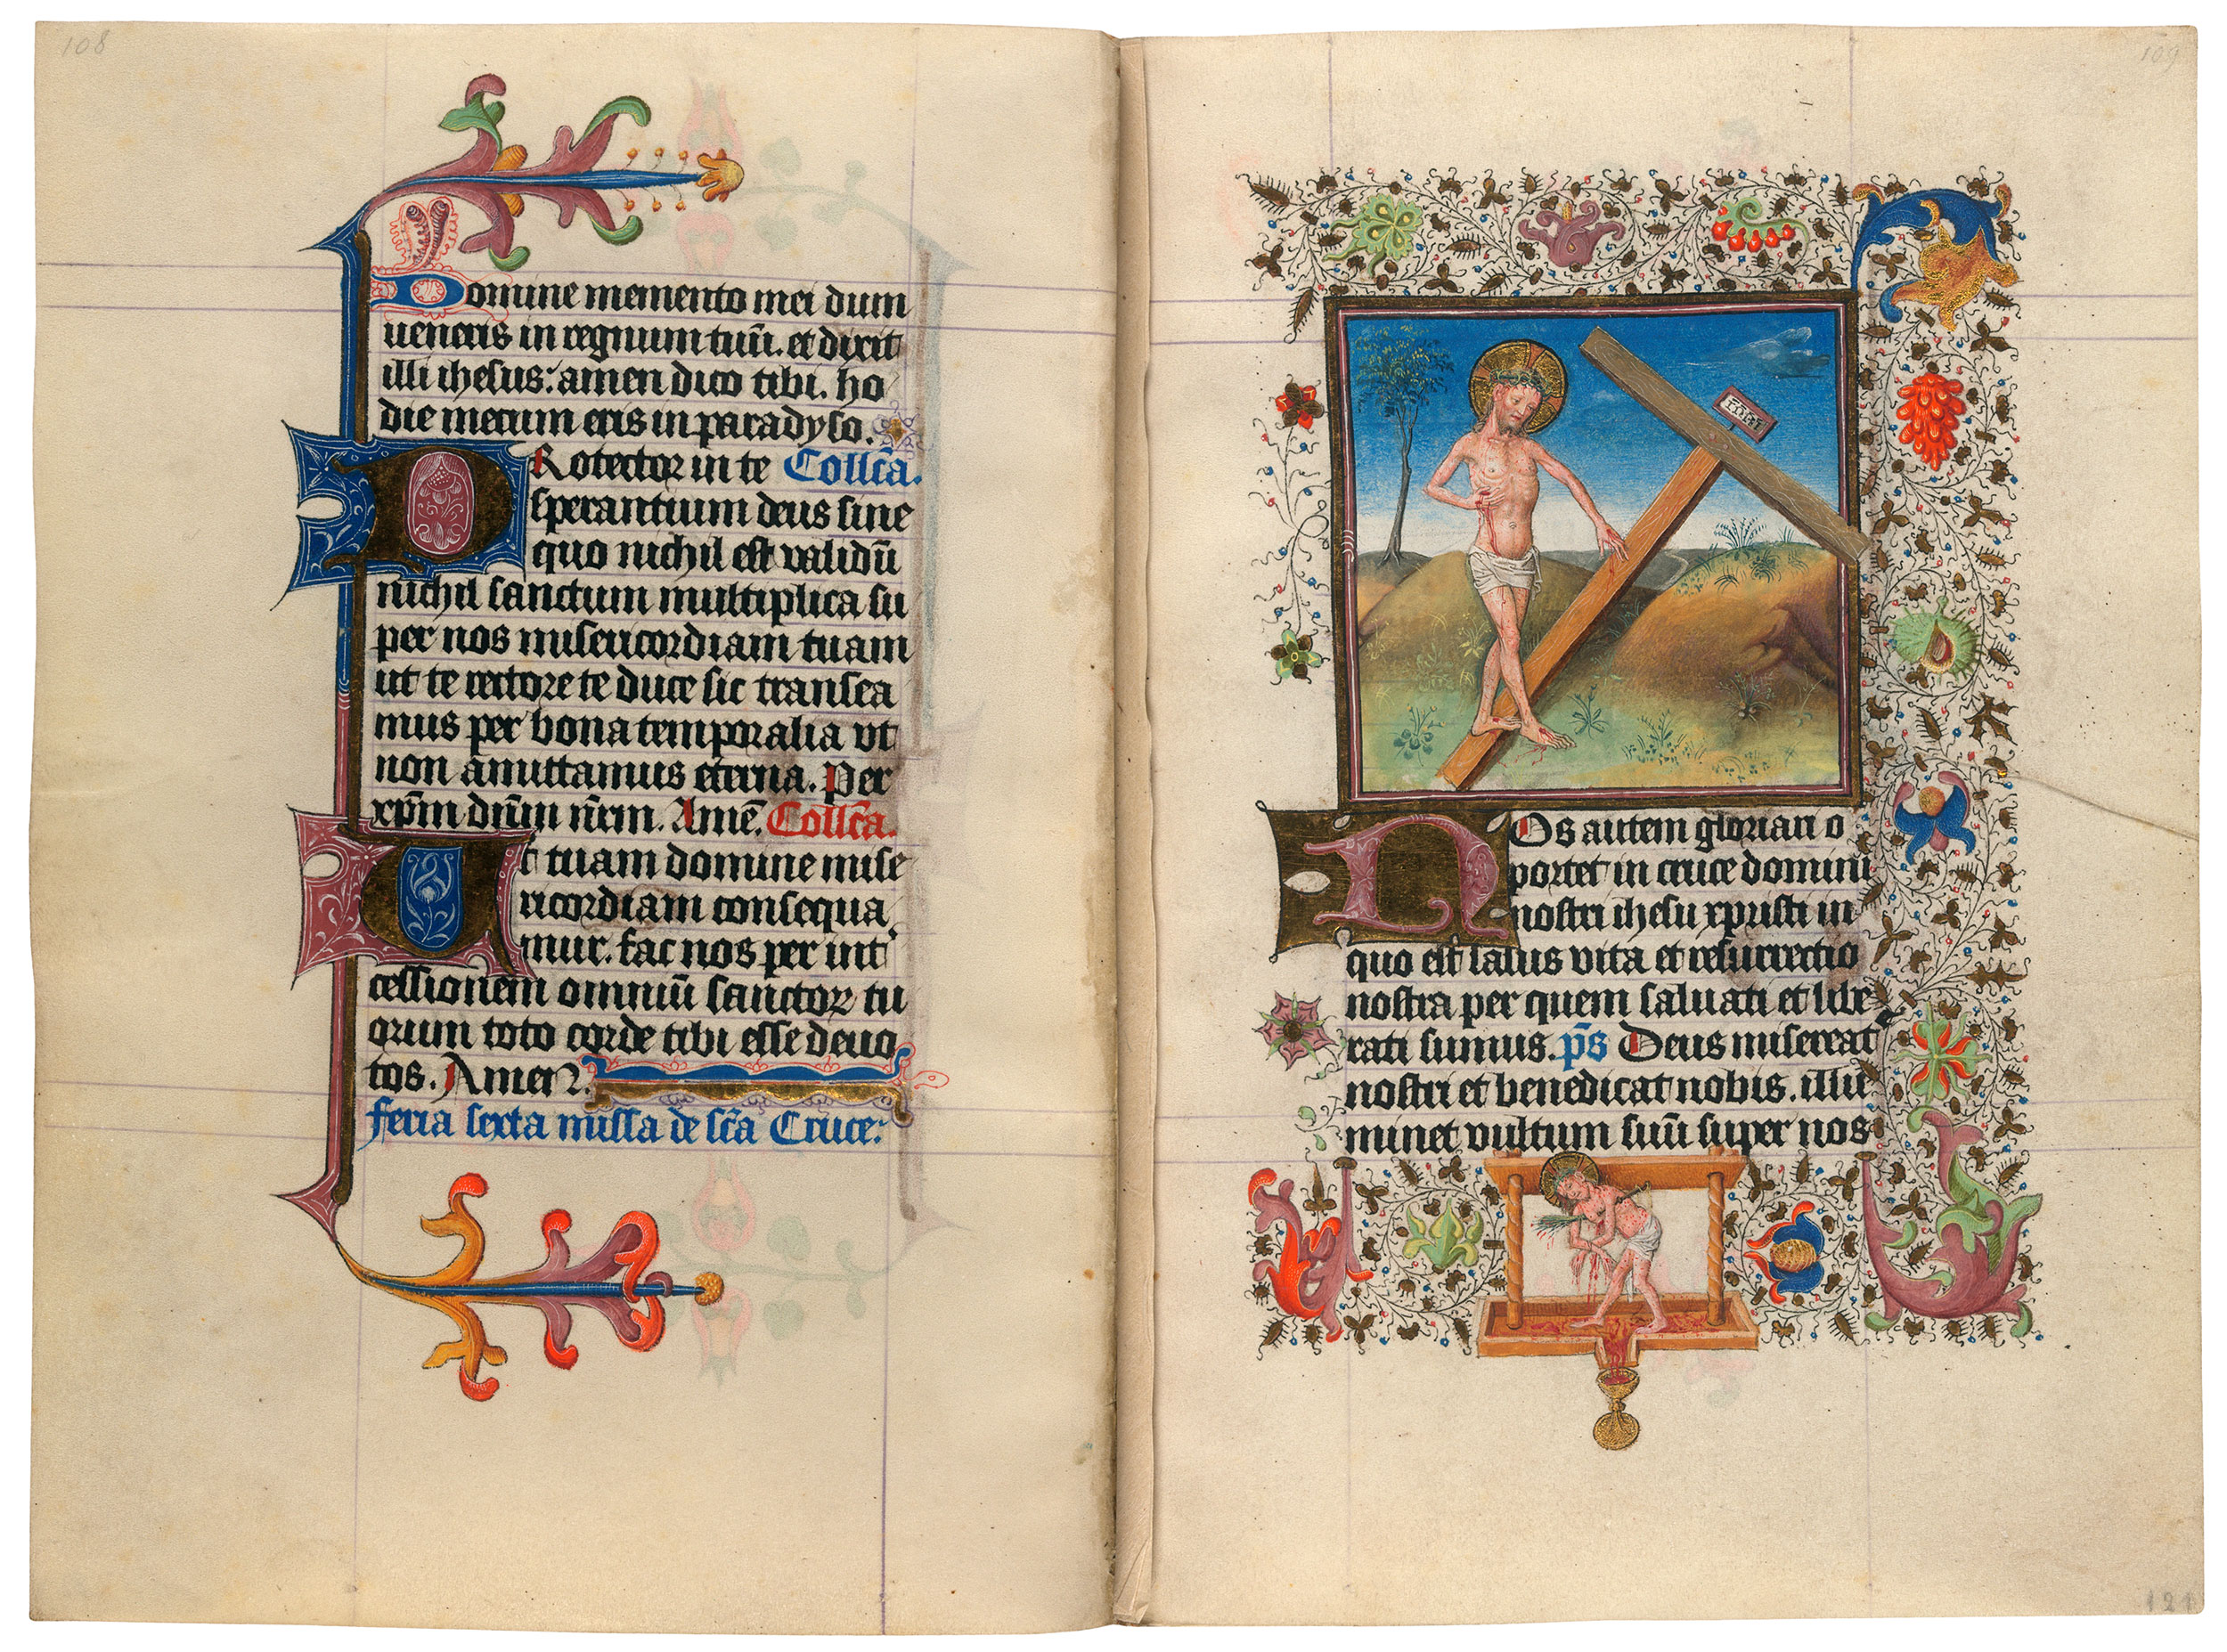 108
Domine memento mei dum
ueneris in regnum tuū. et dixit
illi ihesus: amen dico tibi. ho
die mecum eris in paradyso.
PRotector in te Collc̄a.
sperantium deus sine
quo nichil est validū
nichil sanctum multiplica su
per nos misericordiam tuam
ut te rectore te duce sic transea
mus per bona temporalia vt
non amittamus eterna. Per
xp̄m dn̄m nr̄m. Amē. Collc̄a.
Ut tuam domine mise
ricordiam consequa
mur. fac nos per int
cessionem omniū sanctoꝝ tu
orum toto corde tibi esse deuo
tos. Amen.
feria sexta missa de sc̄a Cruce:
109
NOs autem gloriari o
portet in cruce domini
nostri ihesu xpristi in
quo est salus vita et resurrectio
nostra per quem saluati et libe
rati sumus. p̄s Deus misereat
nostri et benedicat nobis. illu
minet vultum suū super nos
121